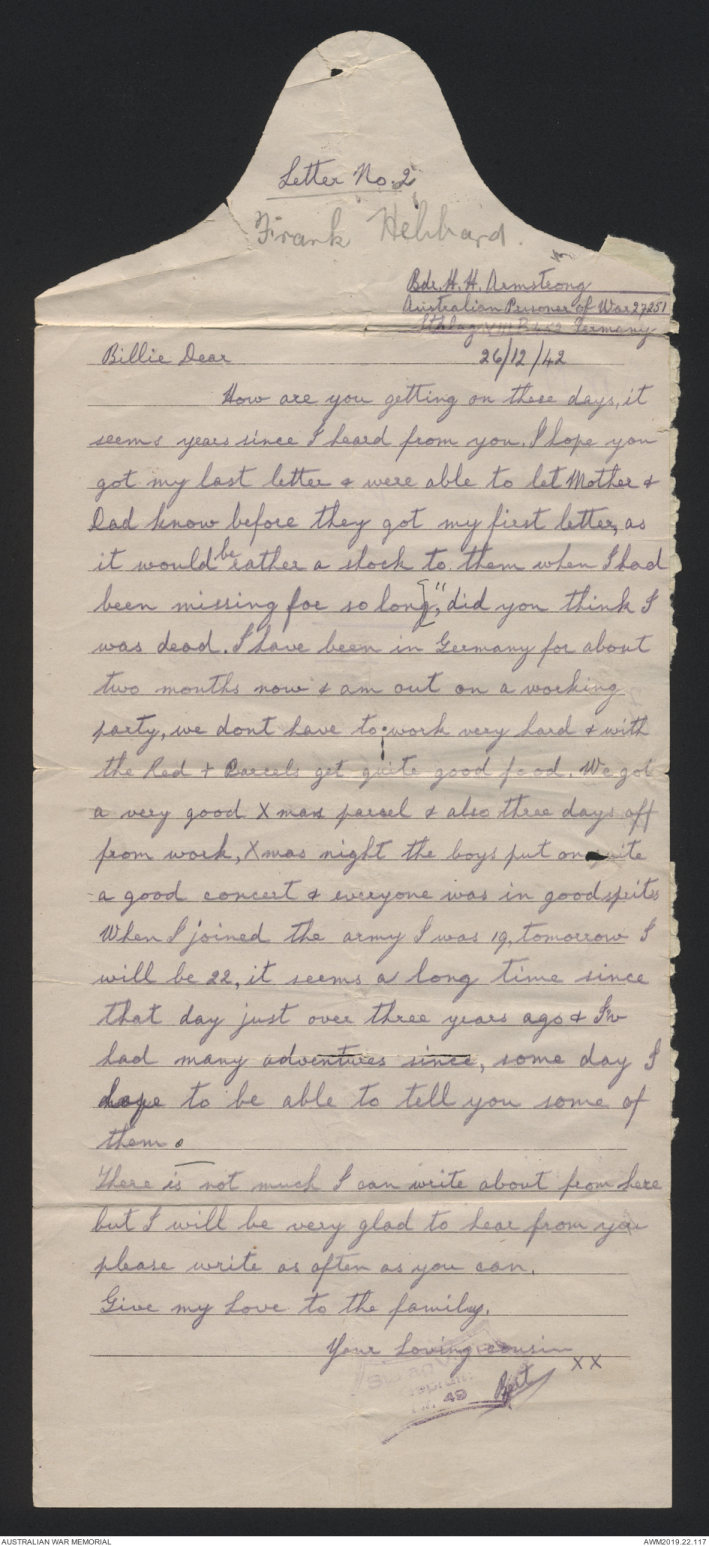 Letter No. 2
Frank Hebbard.
Bdr. H. H. Armstrong
Australian Prisoner of War 27251
Stalag VIIIB Germany
Billie Dear 26/12/42
How are you getting on these days, it
seems years since I heard from you. I hope you
got my last letter & were able to let Mother &
Dad know before they got my first letter, as
it would be rather a shock to them when I had
been missing for so long, did you think I
was dead. I have been in Germany for about
two months now & am out on a working
party, we dont have to work very hard & with
the Red + Parcels get quite good food. We got
a very good Xmas parcel & also three days off
from work, Xmas night the boys put on quite
a good concert & everyone was in good spirits
When I joined the army I was 19, tomorrow I
will be 22, it seems a long time since
that day just over three years ago & Iv
had many adventures since, some day I
hope to be able to tell you some of
them.
There is not much I can write about from here
but I will be very glad to hear from you
please write as often as you can.
Give my love to the family.
Your Loving cousin
Bert xx
49
AUSTRALIAN WAR MEMORIAL AWM2019.22.117